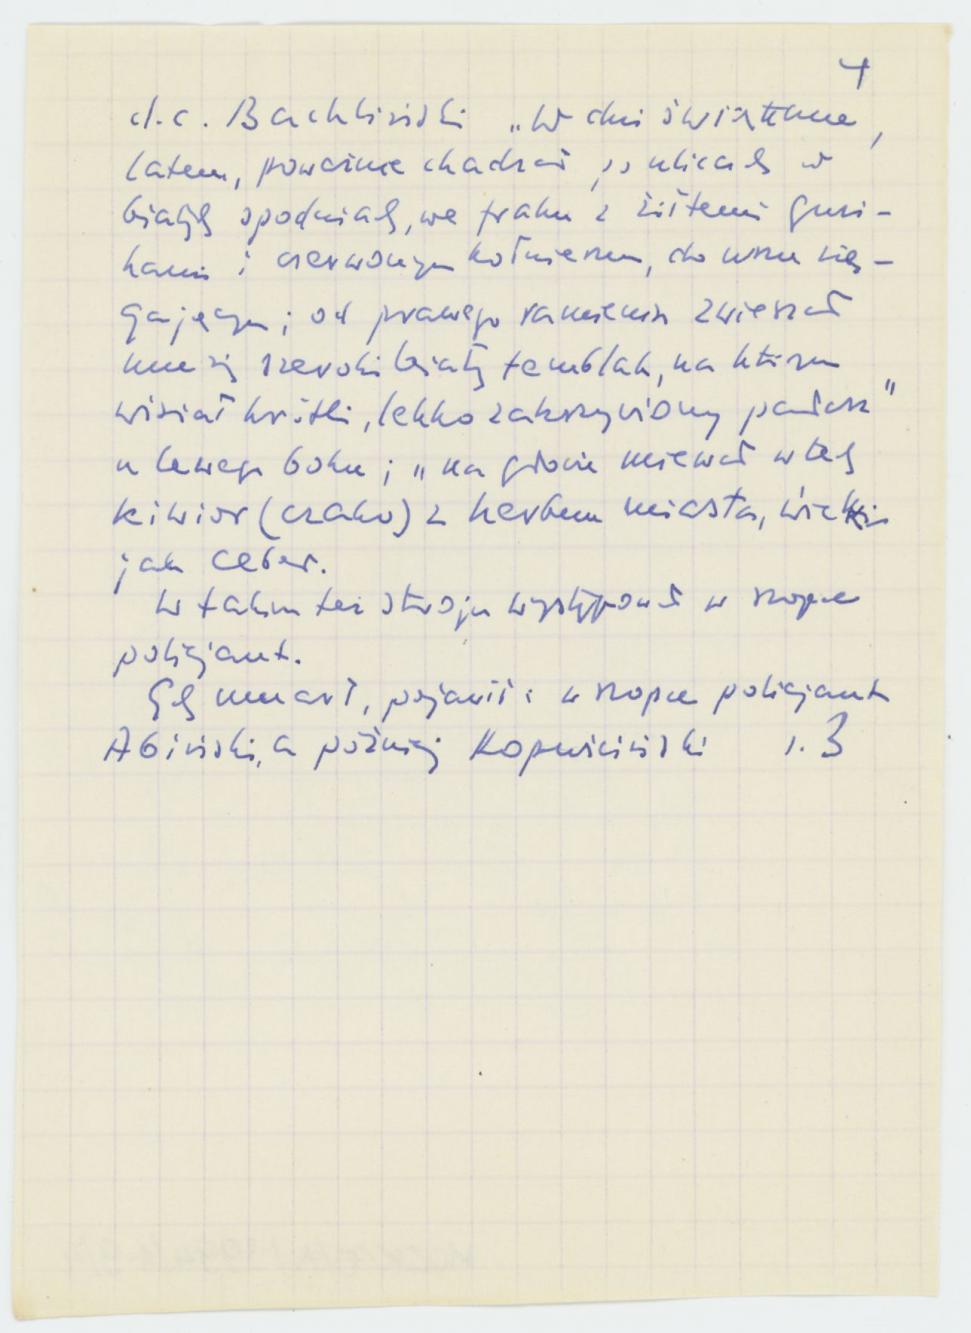 4
d.c. Bachliński „W dni świąteczne,
latem, poważnie chadzał po ulicach w
białych spodniach, we fraku z żółtemi guzi-
kami i czerwonym kołnierzem, do uszu się-
gającym; od prawego ramienia zwieszał
mu się szeroki biały temblak, na którym
wisiał krótki, lekko zakrzywiony pałasz"
u lewego boku; „na głowie miewał wtedy
kiwior (czako) z herbem miasta, wielki
jak ceber.
W takim też stroju występował w szopce
policjant.
Gdy umarł, pojawił się w szopce policjant
Abiński, a później Kopuściński s. 3